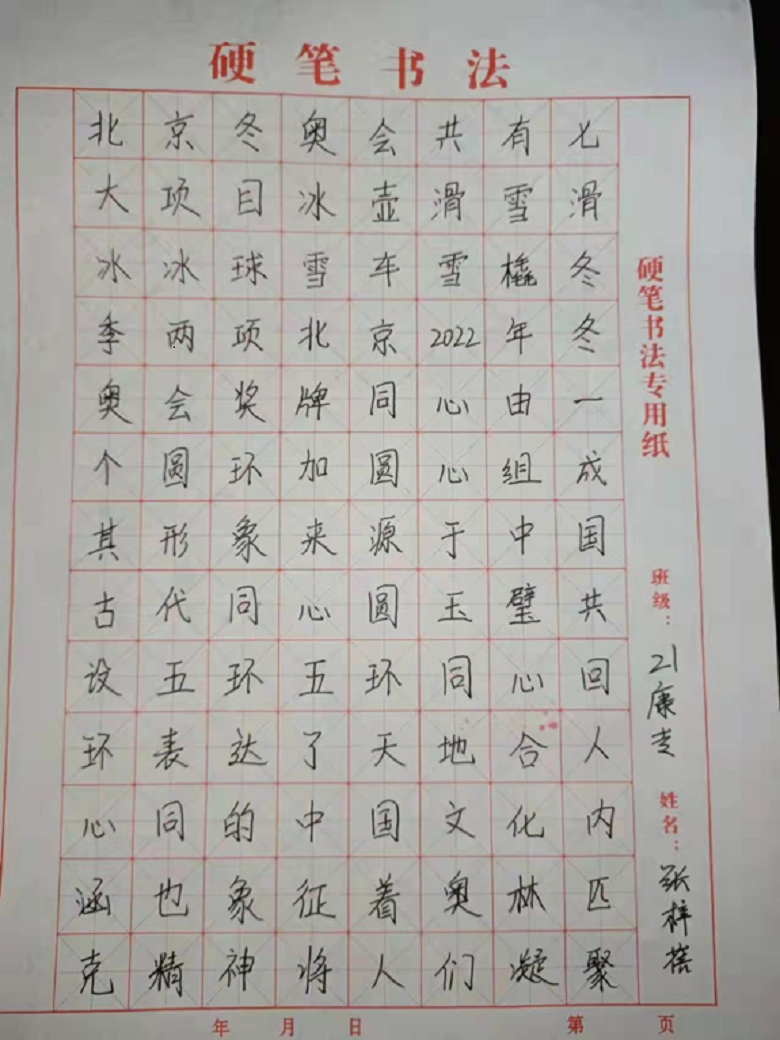 硬笔书法
北京冬奥会共有七
大项目冰壶滑雪滑
冰冰球雪车雪橇冬
季两项北京2022年冬
奥会奖牌同心由一
个圆环加圆心组成
其形象来源于中国
古代同心圆玉璧共
设五环五环同心回
环表达了天地合人
心同的中国文化内
涵也象征着奥林匹
克精神将人们凝聚
硬笔书法专用纸
班级：21康专
姓名：张梓蓓
年 月 日 第 页